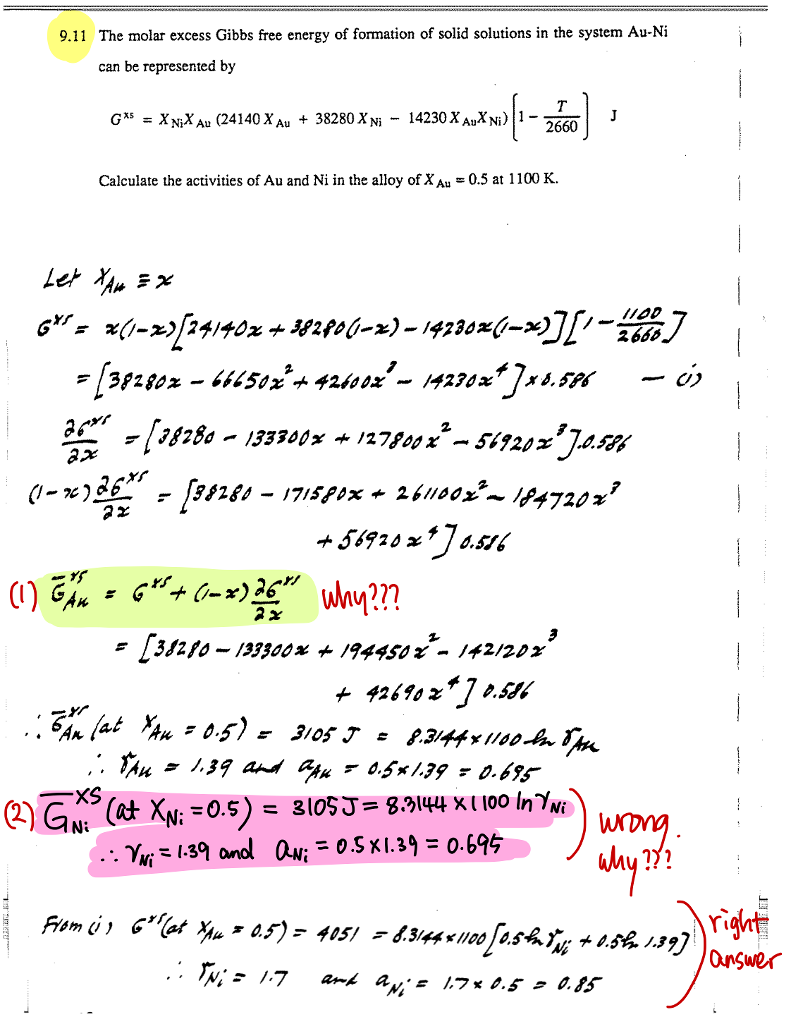 9.11 The molar excess Gibbs free energy of formation of solid solutions in the system Au-Ni
can be represented by
G^xs = X_Ni X_Au (24140 X_Au + 38280 X_Ni − 14230 X_Au X_Ni) [1 − T/2660] J
Calculate the activities of Au and Ni in the alloy of X_Au = 0.5 at 1100 K.
Let X_Au ≡ x
G^xs = x(1−x)[24140x + 38280(1−x) − 14230x(1−x)][1 − 1100/2660]
= [38280x − 66650x² + 42600x³ − 14230x⁴] x 0.586 — (i)
∂G^xs/∂x = [38280 − 133300x + 127800x² − 56920x³].0.586
(1−x) ∂G^xs/∂x = [38280 − 171580x + 261100x² − 184720x³
+ 56920x⁴] 0.586
(1) G̅^xs_Au = G^xs + (1−x) ∂G^xs/∂x why???
= [38280 − 133300x + 194450x² − 142120x³
+ 42690x⁴] 0.586
∴ G̅^xs_Au (at X_Au = 0.5) = 3105 J = 8.3144 x 1100 ln γ_Au
∴ γ_Au = 1.39 and a_Au = 0.5 x 1.39 = 0.695
(2) G̅^XS_Ni (at X_Ni = 0.5) = 3105 J = 8.3144 x 1100 ln γ_Ni
∴ γ_Ni = 1.39 and a_Ni = 0.5 x 1.39 = 0.695
wrong.
why???
From (i) G^xs (at X_Au = 0.5) = 4051 = 8.3144 x 1100 [0.5 ln γ_Ni + 0.5 ln 1.39]
∴ γ_Ni = 1.7 and a_Ni = 1.7 x 0.5 = 0.85
right
answer